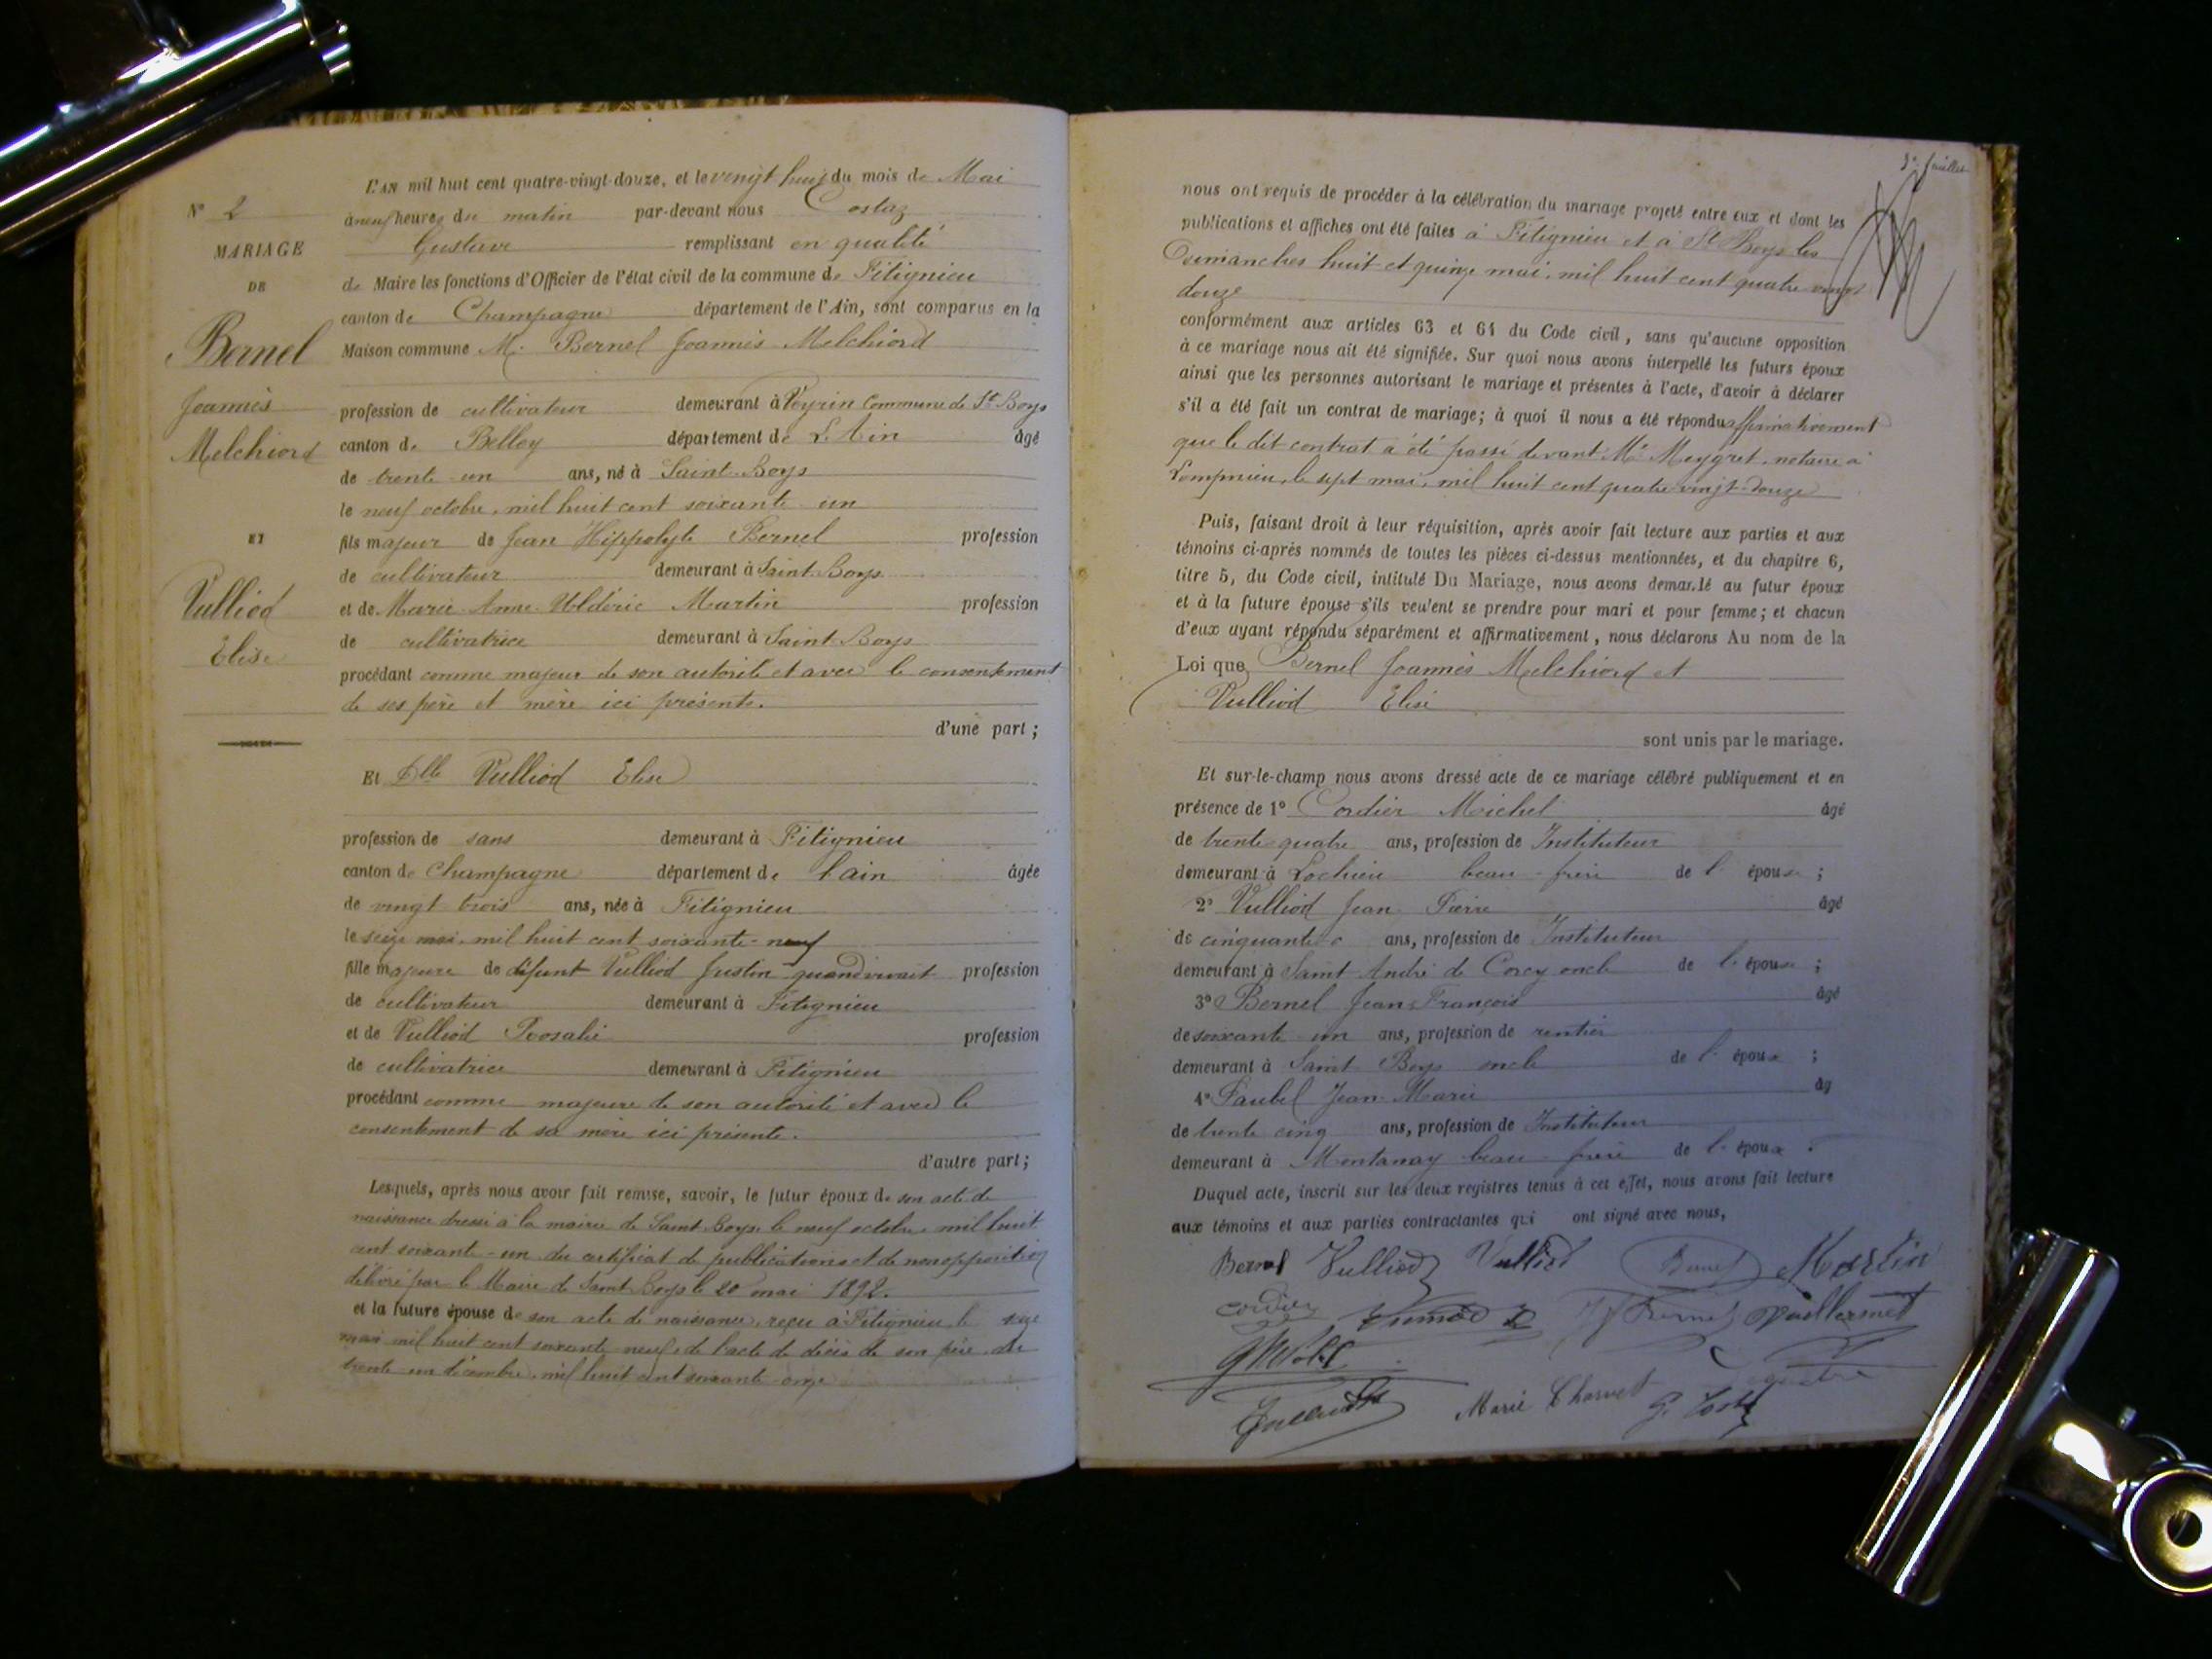 L'AN mil huit cent quatre-vingt-douze, et le vingt huit du mois de Mai
N° 2
à neuf heures du matin par-devant nous Costaz
MARIAGE
Gustave remplissant en qualité
DE
de Maire les fonctions d'Officier de l'état civil de la commune de Fitignieu
canton de Champagne département de l'Ain, sont comparus en la
Bernel
Maison commune M. Bernel Joannès Melchiord
Joannès
profession de cultivateur demeurant à Peyrin Commune de St Boys
Melchiord
canton de Belley département de L'Ain âgé
de trente-un ans, né à Saint-Boys
le neuf octobre, mil huit cent soixante-un
ET
fils majeur de Jean Hippolyte Bernel profession
de cultivateur demeurant à Saint-Boys
Vulliod
et de Marie-Anne Martin profession
de cultivatrice demeurant à Saint-Boys
Elise
procédant comme majeur de son autorité et avec le consentement
de ses père et mère ici présents.
d'une part ;
Et Dlle Vulliod Elise
profession de sans demeurant à Fitignieu
canton de Champagne département de l'ain âgée
de vingt-trois ans, née à Fitignieu
le seize mai, mil huit cent soixante-neuf
fille majeure de défunt Vulliod Justin quand vivait profession
de cultivateur demeurant à Fitignieu
et de Vulliod Rosalie profession
de cultivatrice demeurant à Fitignieu
procédant comme majeure de son autorité et avec le
consentement de sa mère ici présente.
d'autre part ;
Lesquels, après nous avoir fait remise, savoir, le futur époux de son acte de
naissance dressé à la mairie de Saint-Boys, le neuf octobre, mil huit
cent soixante-un, du certificat de publications et de non opposition
délivré par le Maire de Saint-Boys le 20 mai 1892.
et la future épouse de son acte de naissance, reçu à Fitignieu, le seize
mai mil huit cent soixante neuf, de l'acte de décès de son père, du
trente-un décembre, mil huit cent soixante-onze
nous ont requis de procéder à la célébration du mariage projeté entre eux et dont les
publications et affiches ont été faites à Fitignieu et à St Boys les
Dimanches huit et quinze mai, mil huit cent quatre vingt
douze
conformément aux articles 63 et 64 du Code civil, sans qu'aucune opposition
à ce mariage nous ait été signifiée. Sur quoi nous avons interpellé les futurs époux
ainsi que les personnes autorisant le mariage et présentes à l'acte, d'avoir à déclarer
s'il a été fait un contrat de mariage ; à quoi il nous a été répondu affirmativement
que le dit contrat a été passé devant Me Meygret, notaire à
Lompnieu, le sept mai, mil huit cent quatre-vingt-douze
Puis, faisant droit à leur réquisition, après avoir fait lecture aux parties et aux
témoins ci-après nommés de toutes les pièces ci-dessus mentionnées, et du chapitre 6,
titre 5, du Code civil, intitulé Du Mariage, nous avons demandé au futur époux
et à la future épouse s'ils veulent se prendre pour mari et pour femme ; et chacun
d'eux ayant répondu séparément et affirmativement, nous déclarons Au nom de la
Loi que Bernel Joannès Melchiord et
Vulliod Elise
sont unis par le mariage.
Et sur-le-champ nous avons dressé acte de ce mariage célébré publiquement et en
présence de 1° Cordier Michel âgé
de trente-quatre ans, profession de Instituteur
demeurant à Lochieu beau-frère de l'épouse ;
2° Vulliod Jean Pierre âgé
de cinquante ans, profession de Instituteur
demeurant à Saint André de Corcy oncle de l'épouse ;
3° Bernel Jean-François âgé
de soixante-un ans, profession de rentier
demeurant à Saint Boys oncle de l'époux ;
4° Faubel Jean-Marie âg
de trente cinq ans, profession de Instituteur
demeurant à Montanay beau-frère de l'époux.
Duquel acte, inscrit sur les deux registres tenus à cet effet, nous avons fait lecture
aux témoins et aux parties contractantes qui ont signé avec nous,
Bernel Vulliod Vulliod Bernel Martin
Cordier
Marie Charvet